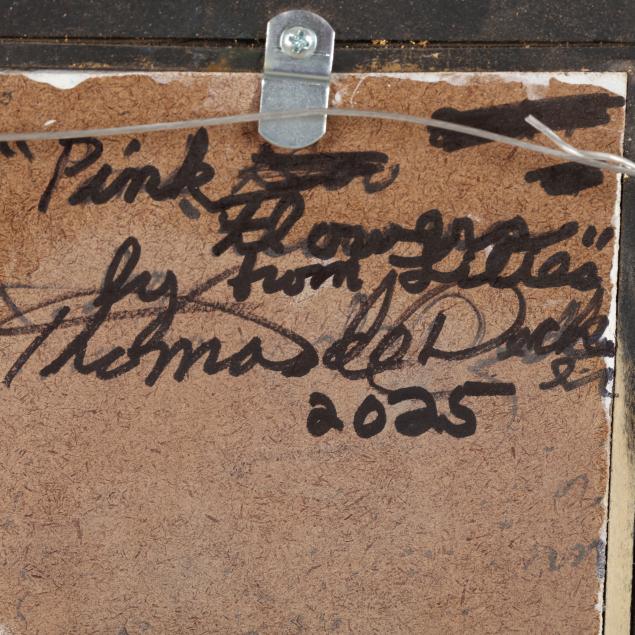 "Pink
Flowers"
from Lilies
by
Thomas de Decker
2025